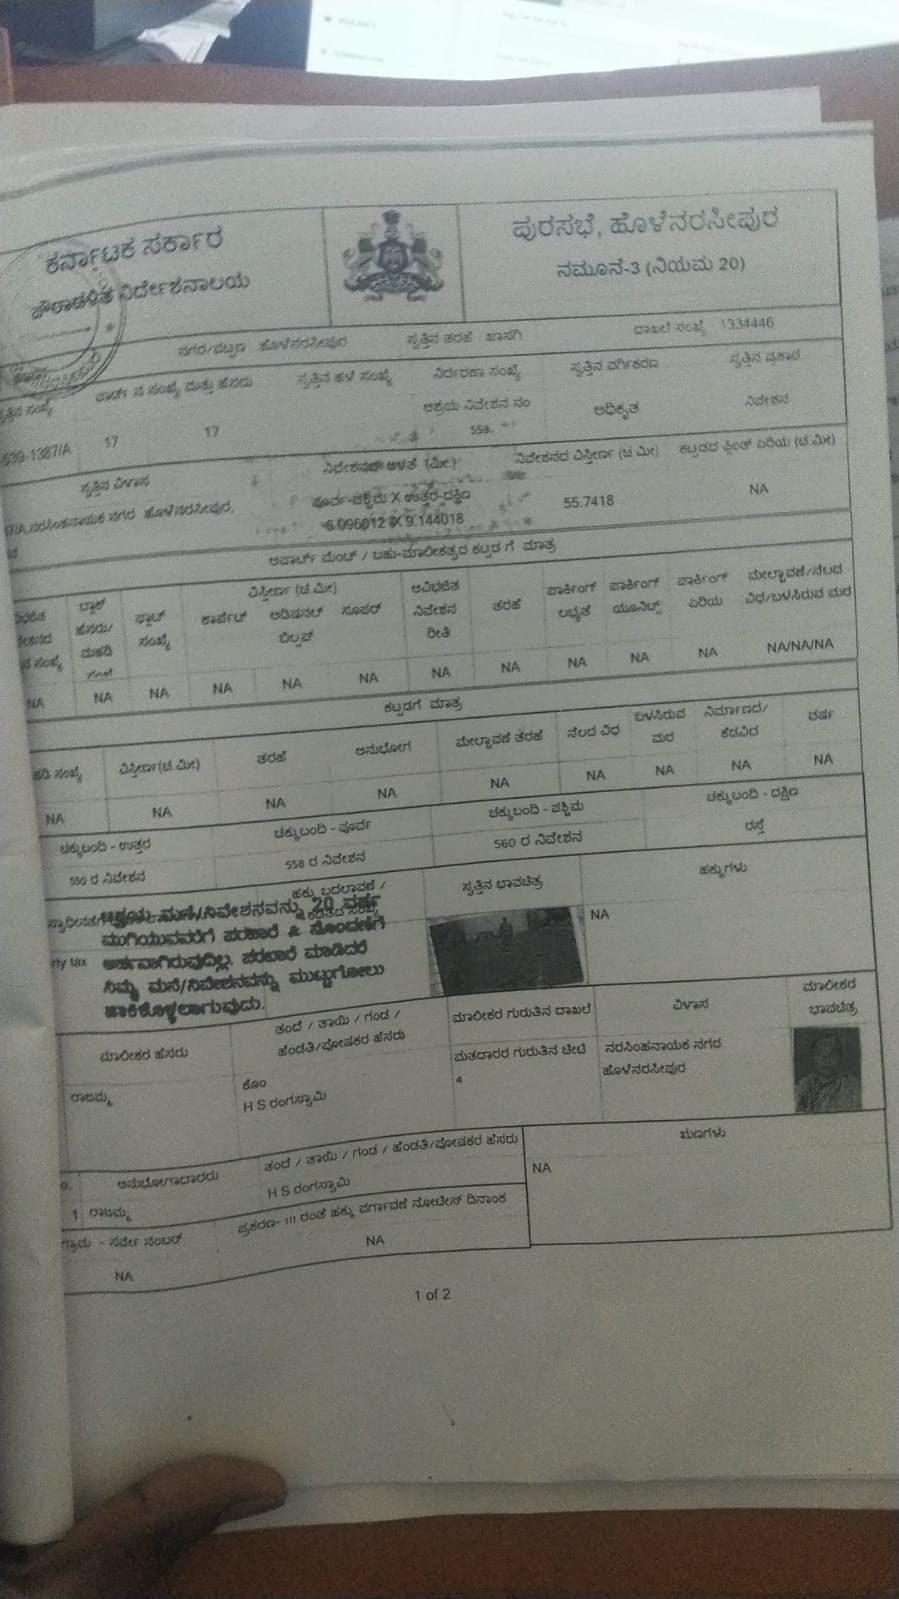 ಕರ್ನಾಟಕ ಸರ್ಕಾರ
ಪೌರಾಡಳಿತ ನಿರ್ದೇಶನಾಲಯ
ಪುರಸಭೆ, ಹೊಳೆನರಸೀಪುರ
ನಮೂನೆ-3 (ನಿಯಮ 20)
ನಗರ/ಪಟ್ಟಣ ಹೊಳೆನರಸೀಪುರ ಸ್ವತ್ತಿನ ತರಹೆ ಖಾಸಗಿ ದಾಖಲೆ ಸಂಖ್ಯೆ 1334446
ಸ್ವತ್ತಿನ ಸಂಖ್ಯೆ ವಾರ್ಡ್ ನ ಸಂಖ್ಯೆ ಮತ್ತು ಹೆಸರು ಸ್ವತ್ತಿನ ಹಳೆ ಸಂಖ್ಯೆ ನಿರ್ದರಣಾ ಸಂಖ್ಯೆ ಸ್ವತ್ತಿನ ವರ್ಗಿಕರಣ ಸ್ವತ್ತಿನ ಪ್ರಕಾರ
-1387/A 17 17 ಆಶ್ರಯ ನಿವೇಶನ ನಂ 559. ಅಧಿಕೃತ ನಿವೇಶನ
ಸ್ವತ್ತಿನ ವಿಳಾಸ ನಿವೇಶನದ ಅಳತೆ (ಮೀ.) ನಿವೇಶನದ ವಿಸ್ತೀರ್ಣ (ಚ ಮೀ) ಕಟ್ಟಡದ ಪ್ಲಿಂತ್ ಏರಿಯ (ಚ ಮೀ)
7/A,ನರಸಿಂಹನಾಯಕ ನಗರ ಹೊಳೆನರಸೀಪುರ, ಪೂರ್ವ-ಪಶ್ಚಿಮ X ಉತ್ತರ-ದಕ್ಷಿಣ 55.7418 NA
6.096012 X 9.144018
ಅಪಾರ್ಟ್ ಮೆಂಟ್ / ಬಹು-ಮಾಲೀಕತ್ವದ ಕಟ್ಟಡ ಗೆ ಮಾತ್ರ
ವಿಸ್ತೀರ್ಣ (ಚ ಮೀ)
ಬ್ಲಾಕ್ ಹೆಸರು/ ಫ್ಲಾಟ್ ಸಂಖ್ಯೆ ಕಾರ್ಪೆಟ್ ಅಡಿಷನಲ್ ಬಿಲ್ಟಪ್ ಸೂಪರ್ ಅವಿಭಜಿತ ನಿವೇಶನ ರೀತಿ ತರಹೆ ಪಾರ್ಕಿಂಗ್ ಲಭ್ಯತೆ ಪಾರ್ಕಿಂಗ್ ಯೂನಿಟ್ಸ್ ಪಾರ್ಕಿಂಗ್ ಏರಿಯ ಮೇಲ್ಛಾವಣೆ/ನೆಲದ ವಿಧ/ಬಳಸಿರುವ ಮರ
NA NA NA NA NA NA NA NA NA NA NA NA/NA/NA
ಕಟ್ಟಡಗೆ ಮಾತ್ರ
ಸಂಖ್ಯೆ ವಿಸ್ತೀರ್ಣ(ಚ.ಮೀ) ತರಹೆ ಅನುಭೋಗ ಮೇಲ್ಛಾವಣಿ ತರಹೆ ನೆಲದ ವಿಧ ಬಳಸಿರುವ ಮರ ನಿರ್ಮಾಣದ/ ಕೆಡವಿದ ವರ್ಷ
NA NA NA NA NA NA NA NA NA
ಚಕ್ಕುಬಂದಿ - ಉತ್ತರ ಚಕ್ಕುಬಂದಿ - ಪೂರ್ವ ಚಕ್ಕುಬಂದಿ - ಪಶ್ಚಿಮ ಚಕ್ಕುಬಂದಿ - ದಕ್ಷಿಣ
ರ ನಿವೇಶನ 558 ರ ನಿವೇಶನ 560 ರ ನಿವೇಶನ ರಸ್ತೆ
ಹಕ್ಕು ಬದಲಾವಣೆ / ಸ್ವತ್ತಿನ ಭಾವಚಿತ್ರ ಹಕ್ಕುಗಳು
ಆಶ್ರಯ ಮನೆ/ನಿವೇಶನವನ್ನು 20 ವರ್ಷ
ಮುಗಿಯುವವರೆಗೆ ಪರಭಾರೆ & ನೊಂದಣಿಗೆ NA
rty tax ಅರ್ಹವಾಗಿರುವುದಿಲ್ಲ. ಪರಭಾರೆ ಮಾಡಿದರೆ
ನಿಮ್ಮ ಮನೆ/ನಿವೇಶನವನ್ನು ಮುಟ್ಟುಗೋಲು
ಹಾಕಿಕೊಳ್ಳಲಾಗುವುದು.
ಮಾಲೀಕರ ಹೆಸರು ತಂದೆ / ತಾಯಿ / ಗಂಡ / ಹೆಂಡತಿ/ಪೋಷಕರ ಹೆಸರು ಮಾಲೀಕರ ಗುರುತಿನ ದಾಖಲೆ ವಿಳಾಸ ಮಾಲೀಕರ ಭಾವಚಿತ್ರ
ರಾಜಮ್ಮ ಕೋಂ H S ರಂಗಸ್ವಾಮಿ ಮತದಾರರ ಗುರುತಿನ ಚೀಟಿ 4 ನರಸಿಂಹನಾಯಕ ನಗರ ಹೊಳೆನರಸೀಪುರ
ಅನುಭೋಗದಾರರು ತಂದೆ / ತಾಯಿ / ಗಂಡ / ಹೆಂಡತಿ/ಪೋಷಕರ ಹೆಸರು ಋಣಗಳು
1 ರಾಜಮ್ಮ H S ರಂಗಸ್ವಾಮಿ NA
ಗ್ರಾಮ - ಸರ್ವೇ ನಂಬರ್ ಪ್ರಕರಣ- III ರಂತೆ ಹಕ್ಕು ವರ್ಗಾವಣೆ ನೋಟೀಸ್ ದಿನಾಂಕ
NA NA
1 of 2